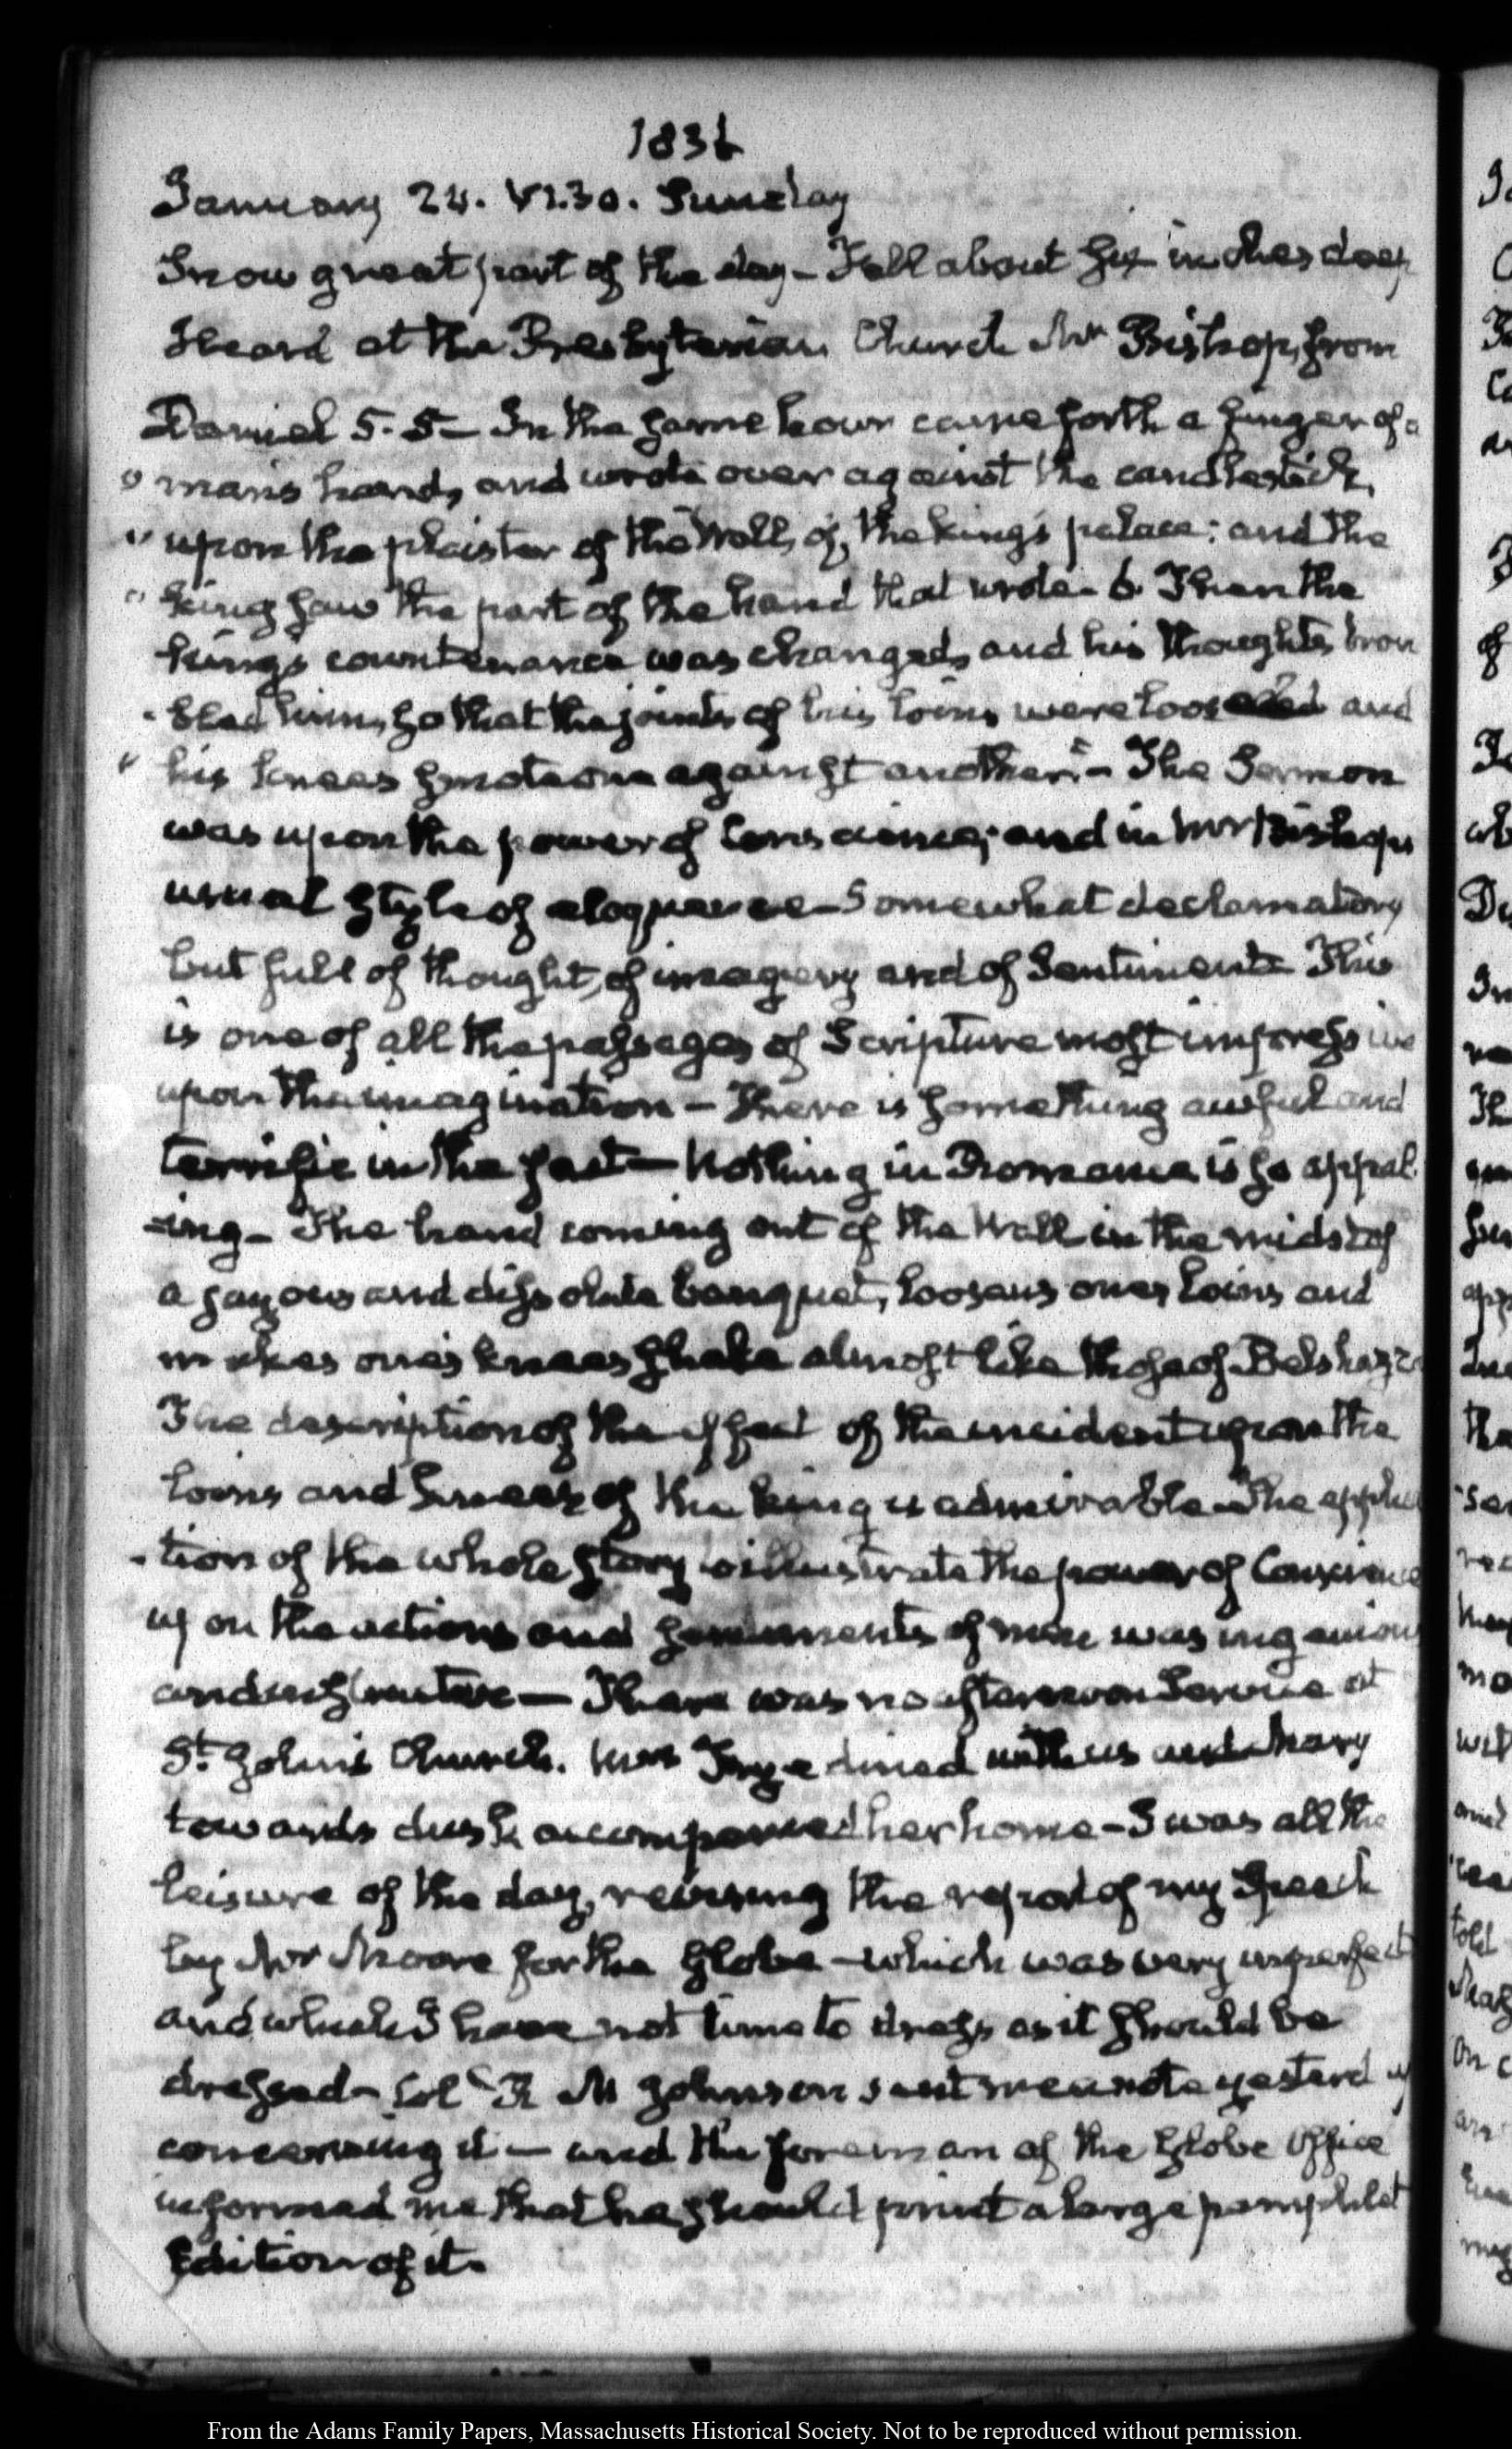 1836
January 24. VI.30. Sunday
Snow great part of the day – Fell about six inches deep
Heard at the Presbyterian Church Mr Bishop, from
Daniel 5.5 – In the same hour came forth a finger of a
" mans hand, and wrote over against the candlestick,
" upon the plaister of the Wall, of, the king's palace: and the
" king saw the part of the hand that wrote. 6. Then the
king's countenance was changed, and his thoughts trou
bled him, so that the joints of his loins were loosed and
" his knees smote one against another." – The Sermon
was upon the power of Conscience; and in Mr Bishop's
usual style of eloquence – Somewhat declamatory
but full of thought, of imagery and of Sentiment. This
is one of all the passages of Scripture most impressive
upon the imagination – There is something awful and
terrific in the fact – Nothing in Romance is so appal
-ing – The hand coming out of the Wall in the midst of
a joyous and dissolute banquet, loosens ones loins and
makes one's knees shake almost like those of Belshazz
The description of the effect of the incident upon the
loins and knees of the king is admirable – The applica
-tion of the whole story to illustrate the power of Conscience
upon the actions and of man was ingenious
and instructive – There was no afternoon Service at
St. John's Church. Mrs Frye dined with us and Mary
towards dusk accompanied her home – I was all the
leisure of the day, revising the report of my Speech
by Mr Moore for the Globe – which was very imperfect
and which I have not time to dress as it should be
dressed – Col. R M Johnson sent me a note yesterday
concerning it – and the foreman of the Globe Office
informed me that he should print a large pamphlet
Edition of it.
From the Adams Family Papers, Massachusetts Historical Society. Not to be reproduced without permission.